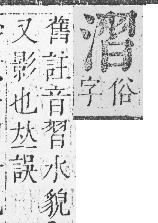 漝俗
字
舊註音習水貌
又影也𠀤誤